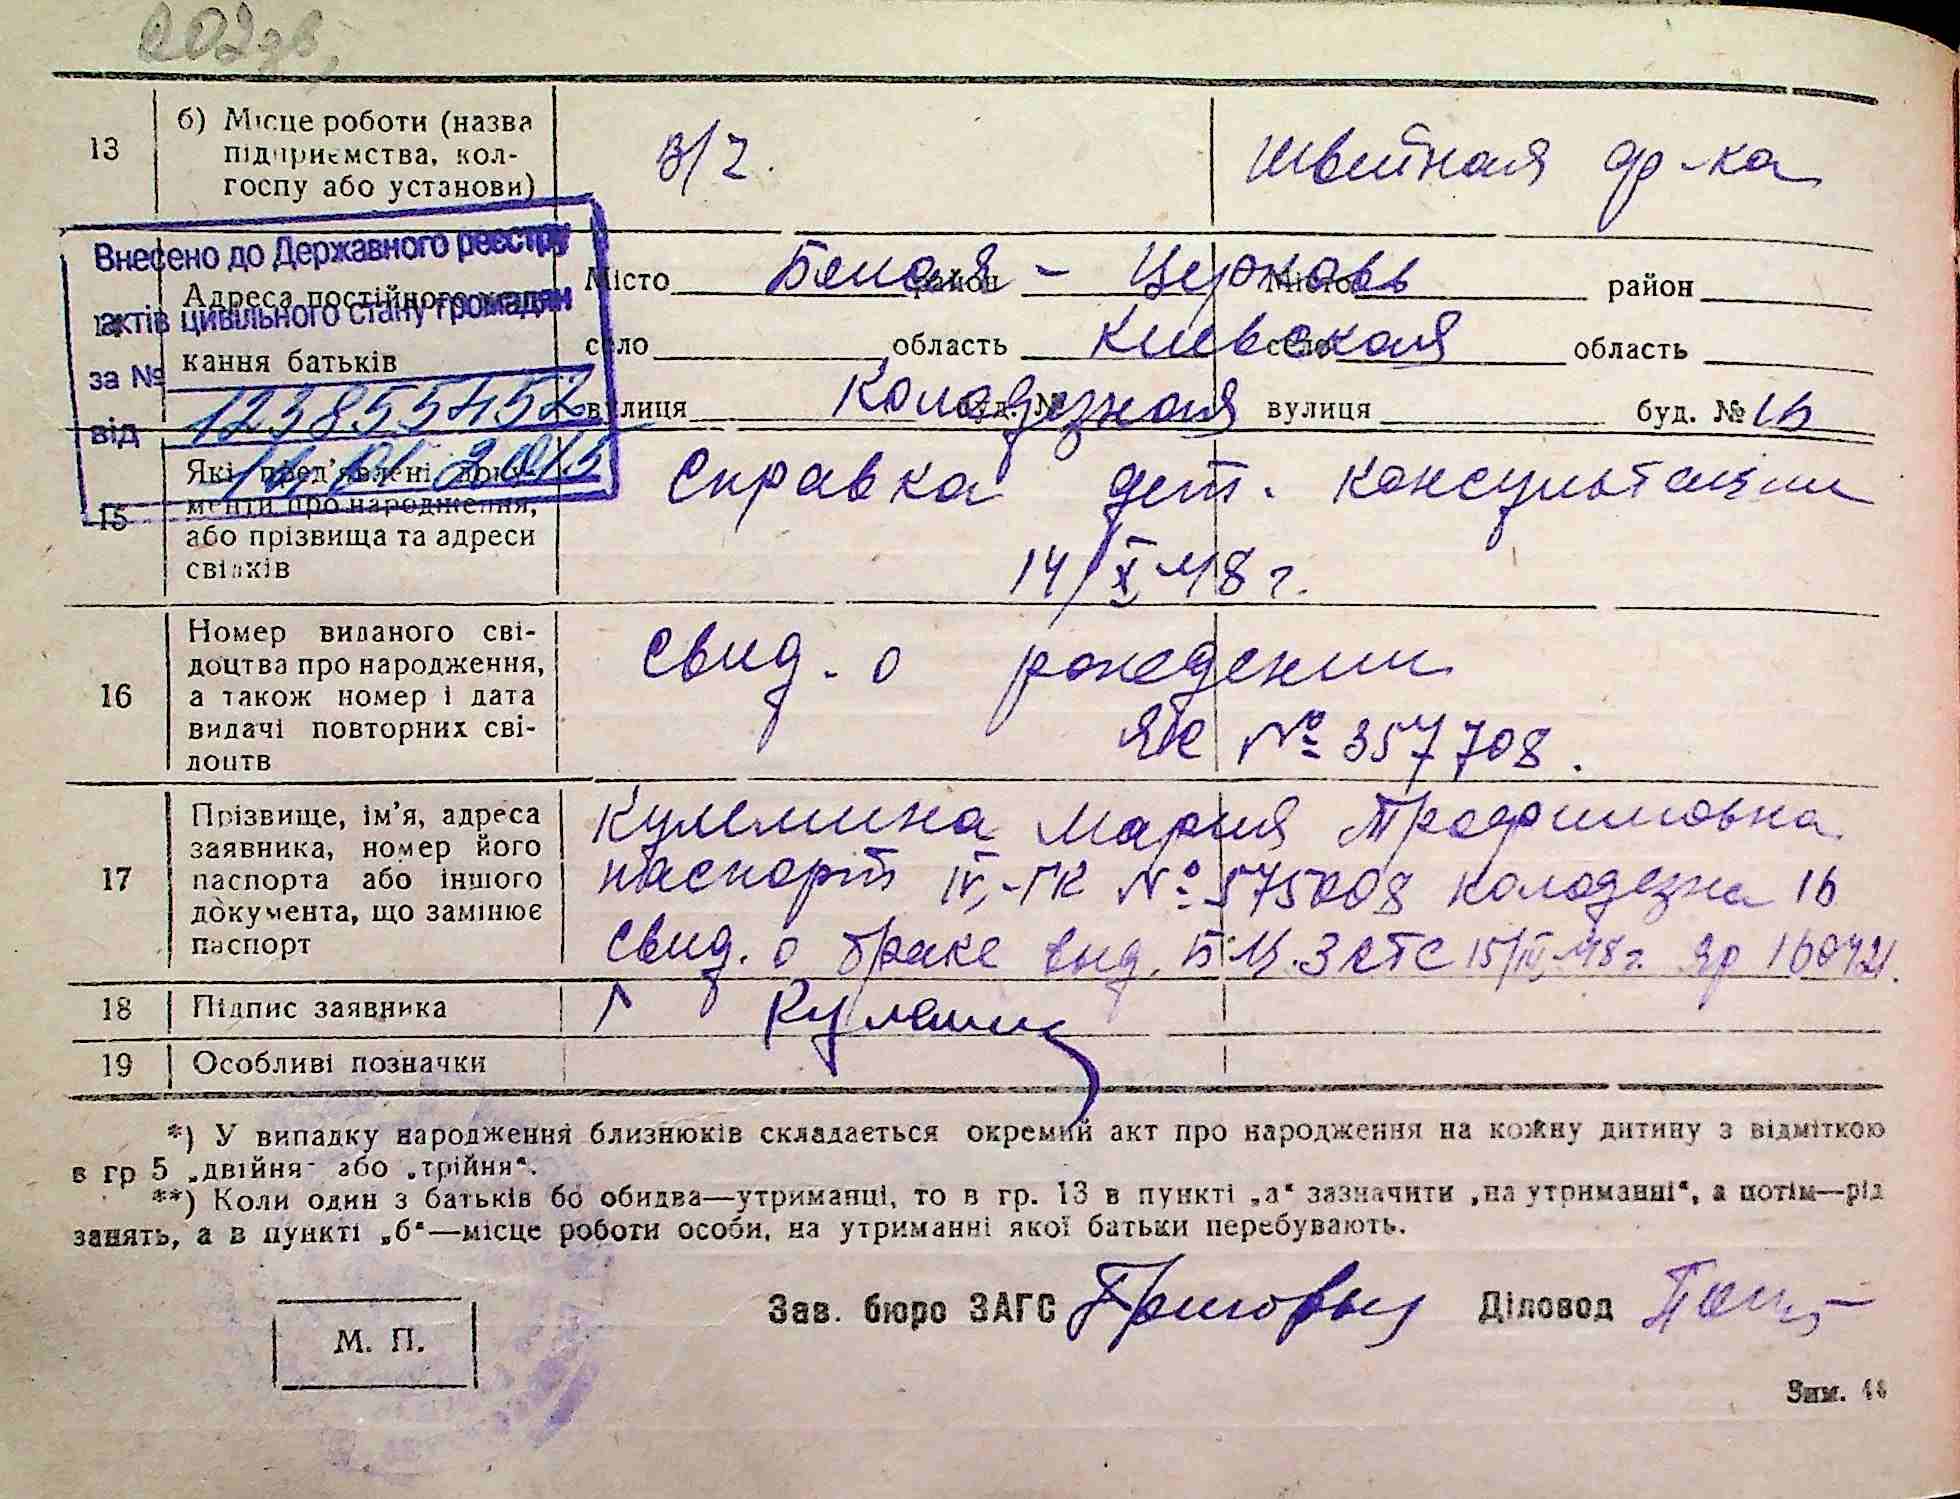 13
б) Місце роботи (назва
підприємства, кол-
госпу або установи)
в/ч.
Швейная ф-ка
Внесено до Державного реєстру
актів цивільного стану громадян
за № 123855452
від 2015
Адреса постійного
кання батьків
Місто Белая - Церковь район Місто район
село область Киевская село область
вулиця Колодезная буд. № вулиця буд. № 16
15
Які пред'явлені доку-
менти про народження,
або прізвища та адреси
свідків
Справка дет. консультации
14/X 48 г.
16
Номер виданого сві-
доцтва про народження,
а також номер і дата
видачі повторних сві-
доцтв
Свид. о рождении
№ 357708.
17
Прізвище, ім'я, адреса
заявника, номер його
паспорта або іншого
документа, що замінює
паспорт
Кулемина Мария Трофимовна
паспорт IV-ГК № 575008 Колодезна 16
Свид. о браке выд. Б.Ц. ЗАГС 15/IV 48 г.
18
Підпис заявника
19
Особливі позначки
*) У випадку народження близнюків складається окремий акт про народження на кожну дитину з відміткою
в гр 5 „двійня" або „трійня".
**) Коли один з батьків бо обидва—утриманці, то в гр. 13 в пункті „а" зазначити „на утриманні", а потім—рід
занять, а в пункті „б"—місце роботи особи, на утриманні якої батьки перебувають.
Зав. бюро ЗАГС
Діловод
М. П.